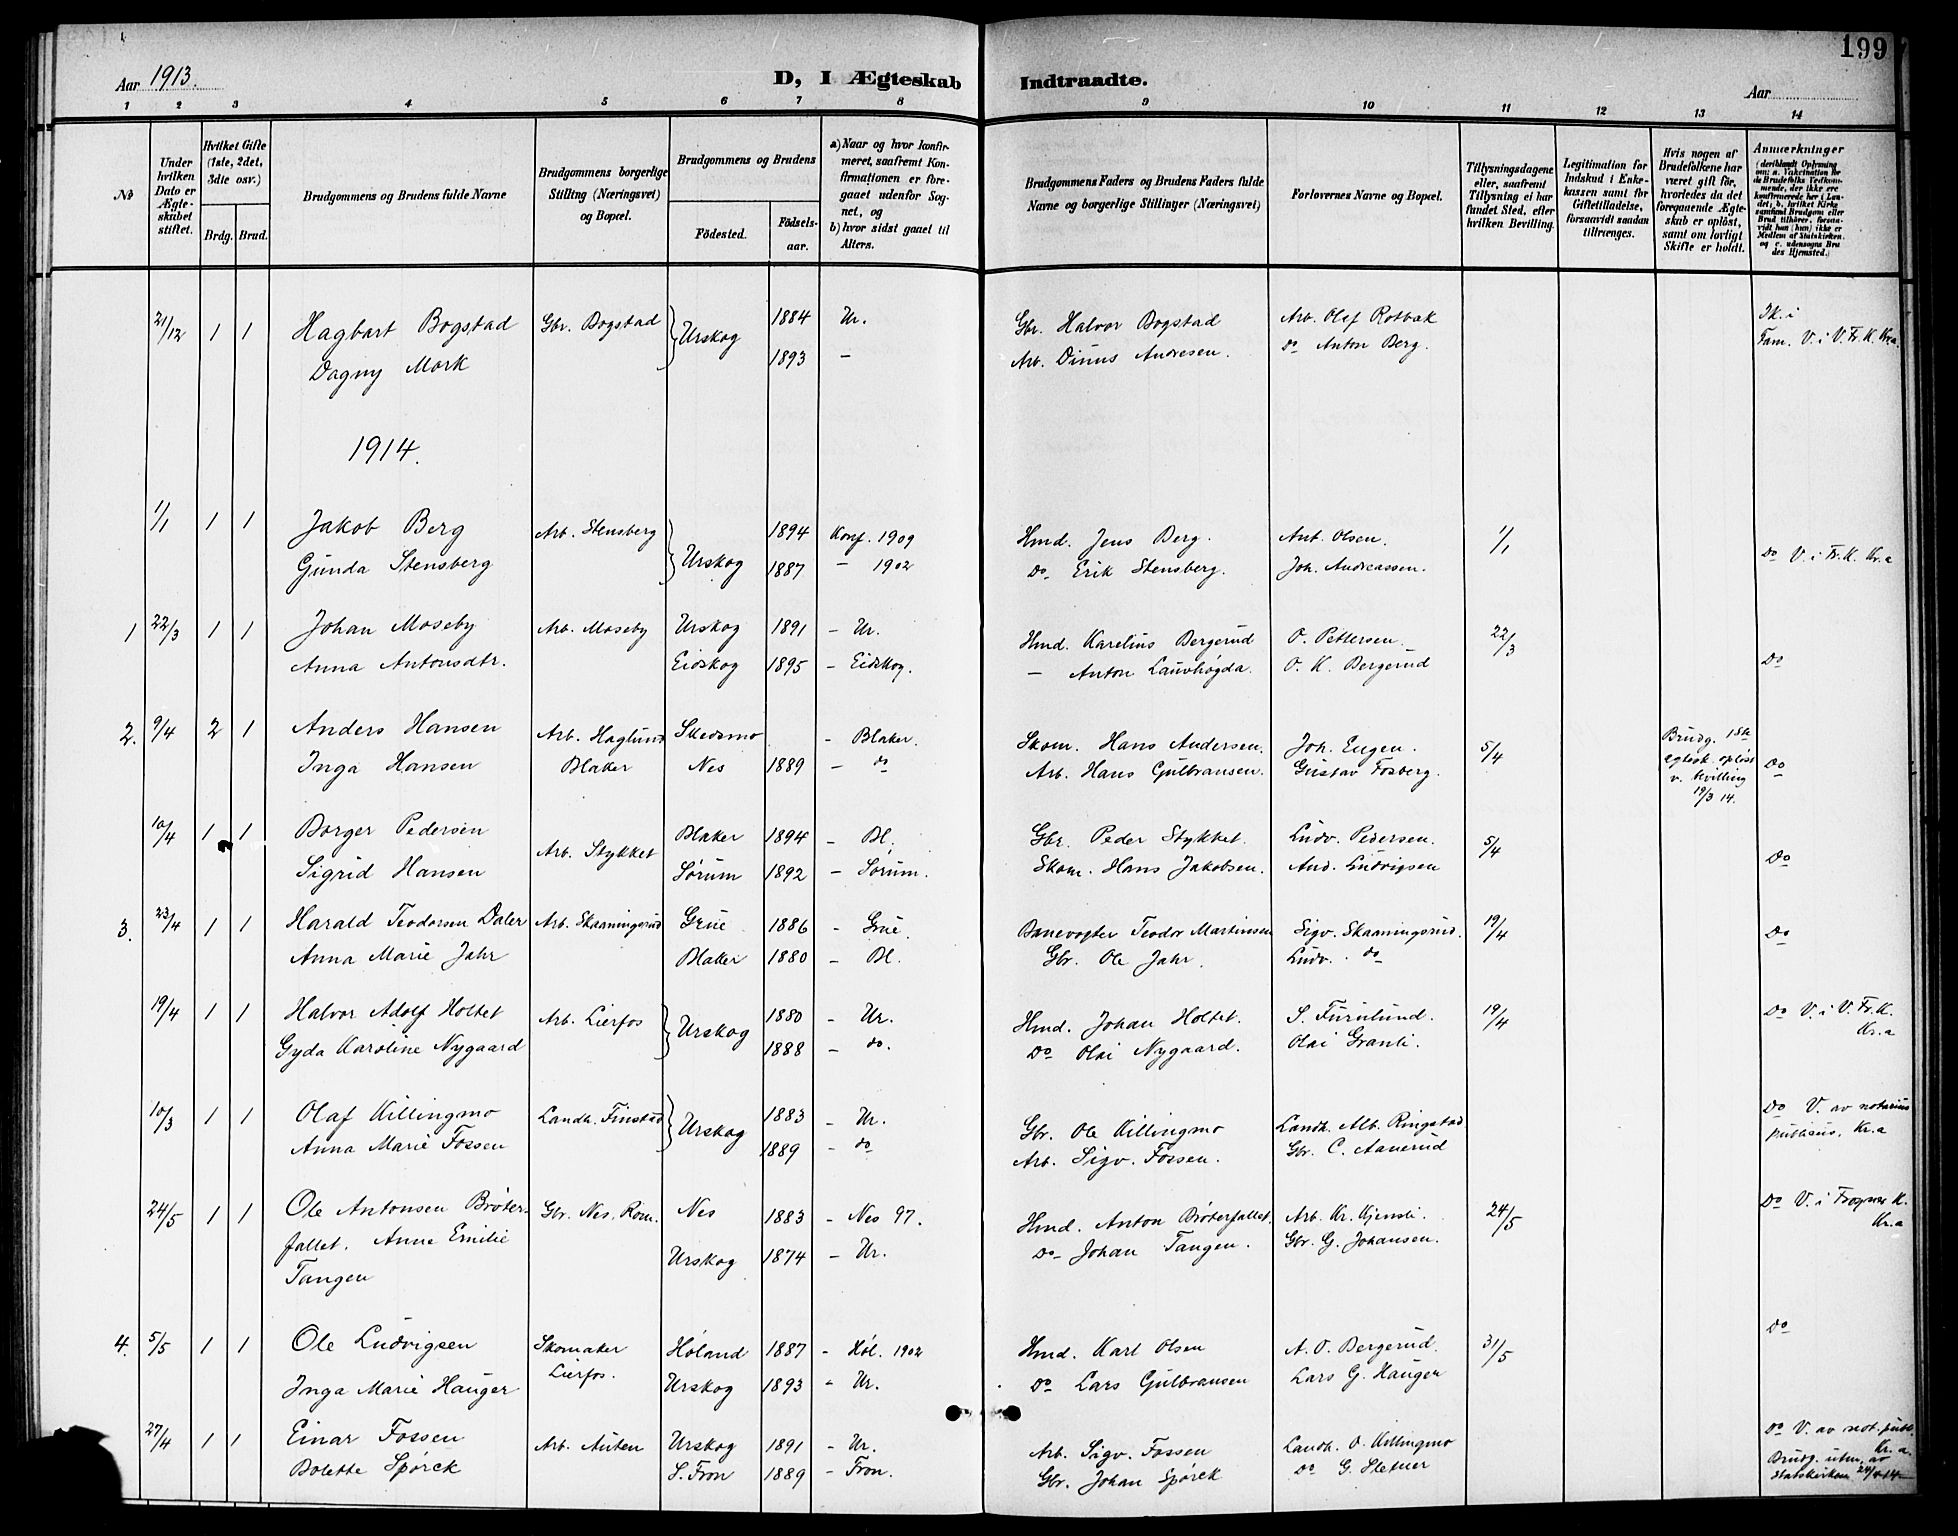 199
Aar 1913.
D, I Ægteskab Indtraadte.
Aar
1 2 3 4 5 6 7 8 9 10 11 12 13 14
№
Under hvilken Dato er Ægteskabet stiftet.
Hvilket Gifte (1ste, 2det, 3die osv.)
Brdg. Brud.
Brudgommens og Brudens fulde Navne
Brudgommens borgerlige Stilling (Næringsvei) og Bopæl.
Brudgommens og Brudens
Födested.
Födselsaar.
a) Naar og hvor konfirmeret, saafremt Konfirmationen er foregaaet udenfor Sognet, og
b) hvor sidst gaaet til Alters.
Brudgommens Faders og Brudens Faders fulde Navne og borgerlige Stillinger (Næringsvei)
Forlovernes Navne og Bopæl.
Tillysningsdagene eller, saafremt Tillysning ei har fundet Sted, efter hvilken Bevilling.
Legitimation for Indskud i Enkekassen samt for Giftetilladelse, forsaavidt saadan tiltrænges.
Hvis nogen af Brudefolkene har været gift för, hvorledes da det foregaaende Ægteskab er oplöst, samt om lovligt Skifte er holdt.
Anmærkninger (deriblandt Oplysning om: a. Vaccination for de Brudefolks Vedkommende, der ikke ere konfirmerede her i Landet, b. hvilket Kirkesamfund Brudgom eller Brud tilhörer, forsaavidt han (hun) ikke er Medlem af Statskirken, og c. udensogns Brudes Hjemsted.)
21/12 1 1 Hagbart Bogstad Gbr. Bogstad } Urskog 1884 Ur. Gbr. Halvor Bogstad Arb. Olef Rotbæk Ik. i
Dagny Mork 1893 – Arb. Dinus Andresen. Do Anton Berg. Fam. V. i V. Fr. K. Kr.a.
1914.
1/1 1 1 Jakob Berg Arb. Stensberg } Urskog 1894 Konf. 1909 Hmd. Jens Berg. Ant. Olsen. 1/1
Gunda Stensberg 1887 – 1902 Do Erik Stensberg. Joh. Andreassen. Do V. i Fr. K. Kr.a
1 22/3 1 1 Johan Moseby Arb. Moseby Urskog 1891 – Ur. Hmd. Karelius Bergerud O. Pettersen. 22/3
Anna Antonsdtr. Eidskog 1895 – Eidskog. – Anton Lauvhøgda. O. K. Bergerud Do
2. 9/4 2 1 Anders Hansen Arb. Haglund Skedsmo – Blaker. Skom. Hans Andersen. Joh. Eugen. 5/4 Brudg. 1ste
Inga Hansen Blaker Nes 1889 – do Arb. Hans Gulbransen. Gustav Fosberg. egtesk. opløst Do
v. bevilling
19/3 14.
10/4 1 1 Borger Pedersen Arb. Stykket Blaker 1894 – Bl. Gbr. Peder Stykket. Ludv. Pedersen. 5/4
Sigrid Hansen Sørum 1892 – Sørum. Skom. Hans Jakobsen. And. Ludvigsen Do
3. 23/4 1 1 Harald Teodorsen Daler Arb. Skaaningsrud Grue 1886 – Grue. Banevogter Teodor Martinsen Sigv. Skaaningsrud. 19/4
Anna Marie Jahr Blaker 1880 – Bl. Gbr. Ole Jahr. Ludv. do Do
19/4 1 1 Halvor Adolf Holtet Arb. Lierfos } Urskog 1880 – Ur. Hmd. Johan Holtet. S. Furulund. 19/4 Do V. i V. Fr. K.
Gyda Karoline Nygaard 1888 – do. Do Olai Nygaard. Olai Granli. Kr.a
10/3 1 1 Olaf Killingmo Landh. Finstad } Urskog 1883 – Ur. Gbr. Ole Killingmo Landh. Alb. Ringstad Do V. av notarius
Anna Marie Fossen 1889 – do Arb. Sigv. Fossen. Gbr. C. Aanerud publicus. Kr.a
24/5 1 1 Ole Antonsen Brøter- Gbr. Nes, Rom. Nes 1883 – Nes 97. Hmd. Anton Brøterfallet. Arb. Kr. Kjensli. 24/5 Do V. i Frogner K.
fallet. Anne Emilie Urskog 1874 – Ur. Do Johan Tangen. Gbr. G. Johansen. Kr.a
Tangen
4. 5/5 1 1 Ole Ludvigsen Skomaker Høland 1887 – Høl. 1902 Hmd. Karl Olsen A. O. Bergerud. 31/5 Do
Inga Marie Hauger Lierfos. Urskog 1893 – Ur. Do Lars Gulbransen Lars G. Hauger
27/4 1 1 Einar Fossen Arb. Auten Urskog 1891 – Ur. Arb. Sigv. Fossen Landh. O. Killingmo Do V. av not. publ. Kr.a.
Bolette Spørck S. Fron 1889 – Fron. Gbr. Johan Spørck Do G. Sletner Brudg. utm. av
Statskirken 24/4 14